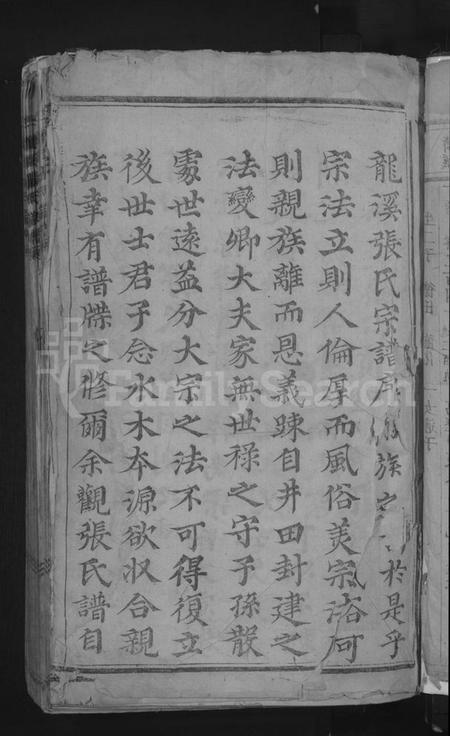 龍溪張氏宗譜族之於是乎
宗法立則人倫厚而風俗美宗法
則親族離而恩義踈自井田封建之
法變卿大夫家無世祿之守子孫散
處世遠益分大宗之法不可得復立
後世士君子念水木本源欲収合親
族幸有譜牒之修爾余觀張氏譜自
FamilySearch